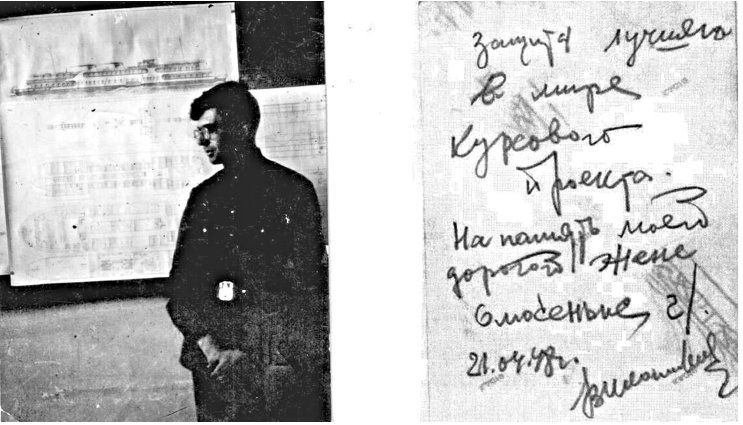 Защита лучшего
в мире
курсового
проекта.
На память моей
дорогой жене
21.04.48г.